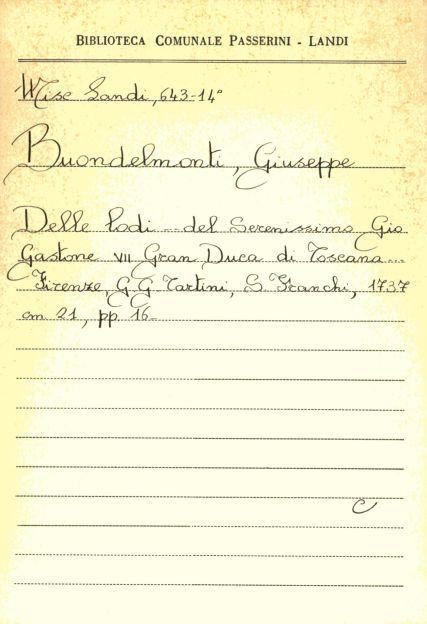 BIBLIOTECA COMUNALE PASSERINI - LANDI
Misc Landi, 643-14°
Buondelmonti, Giuseppe
Delle lodi ... del Serenissimo Gio
Gastone VII Gran Duca di Toscana...
Firenze, G.G. Tartini, S. Franchi, 1737
cm 21, pp. 16
C